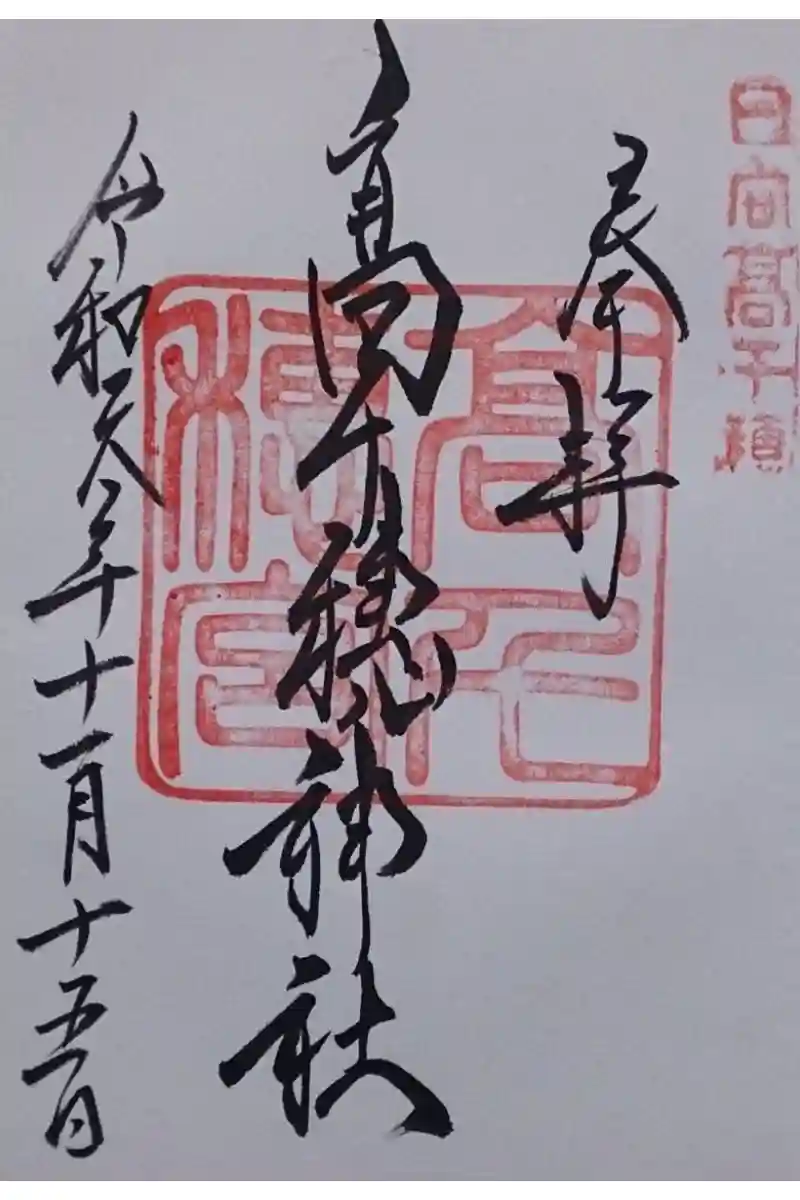 日向高千穂
奉拝
高千穂神社
高千穂宮
令和元年十一月十五日